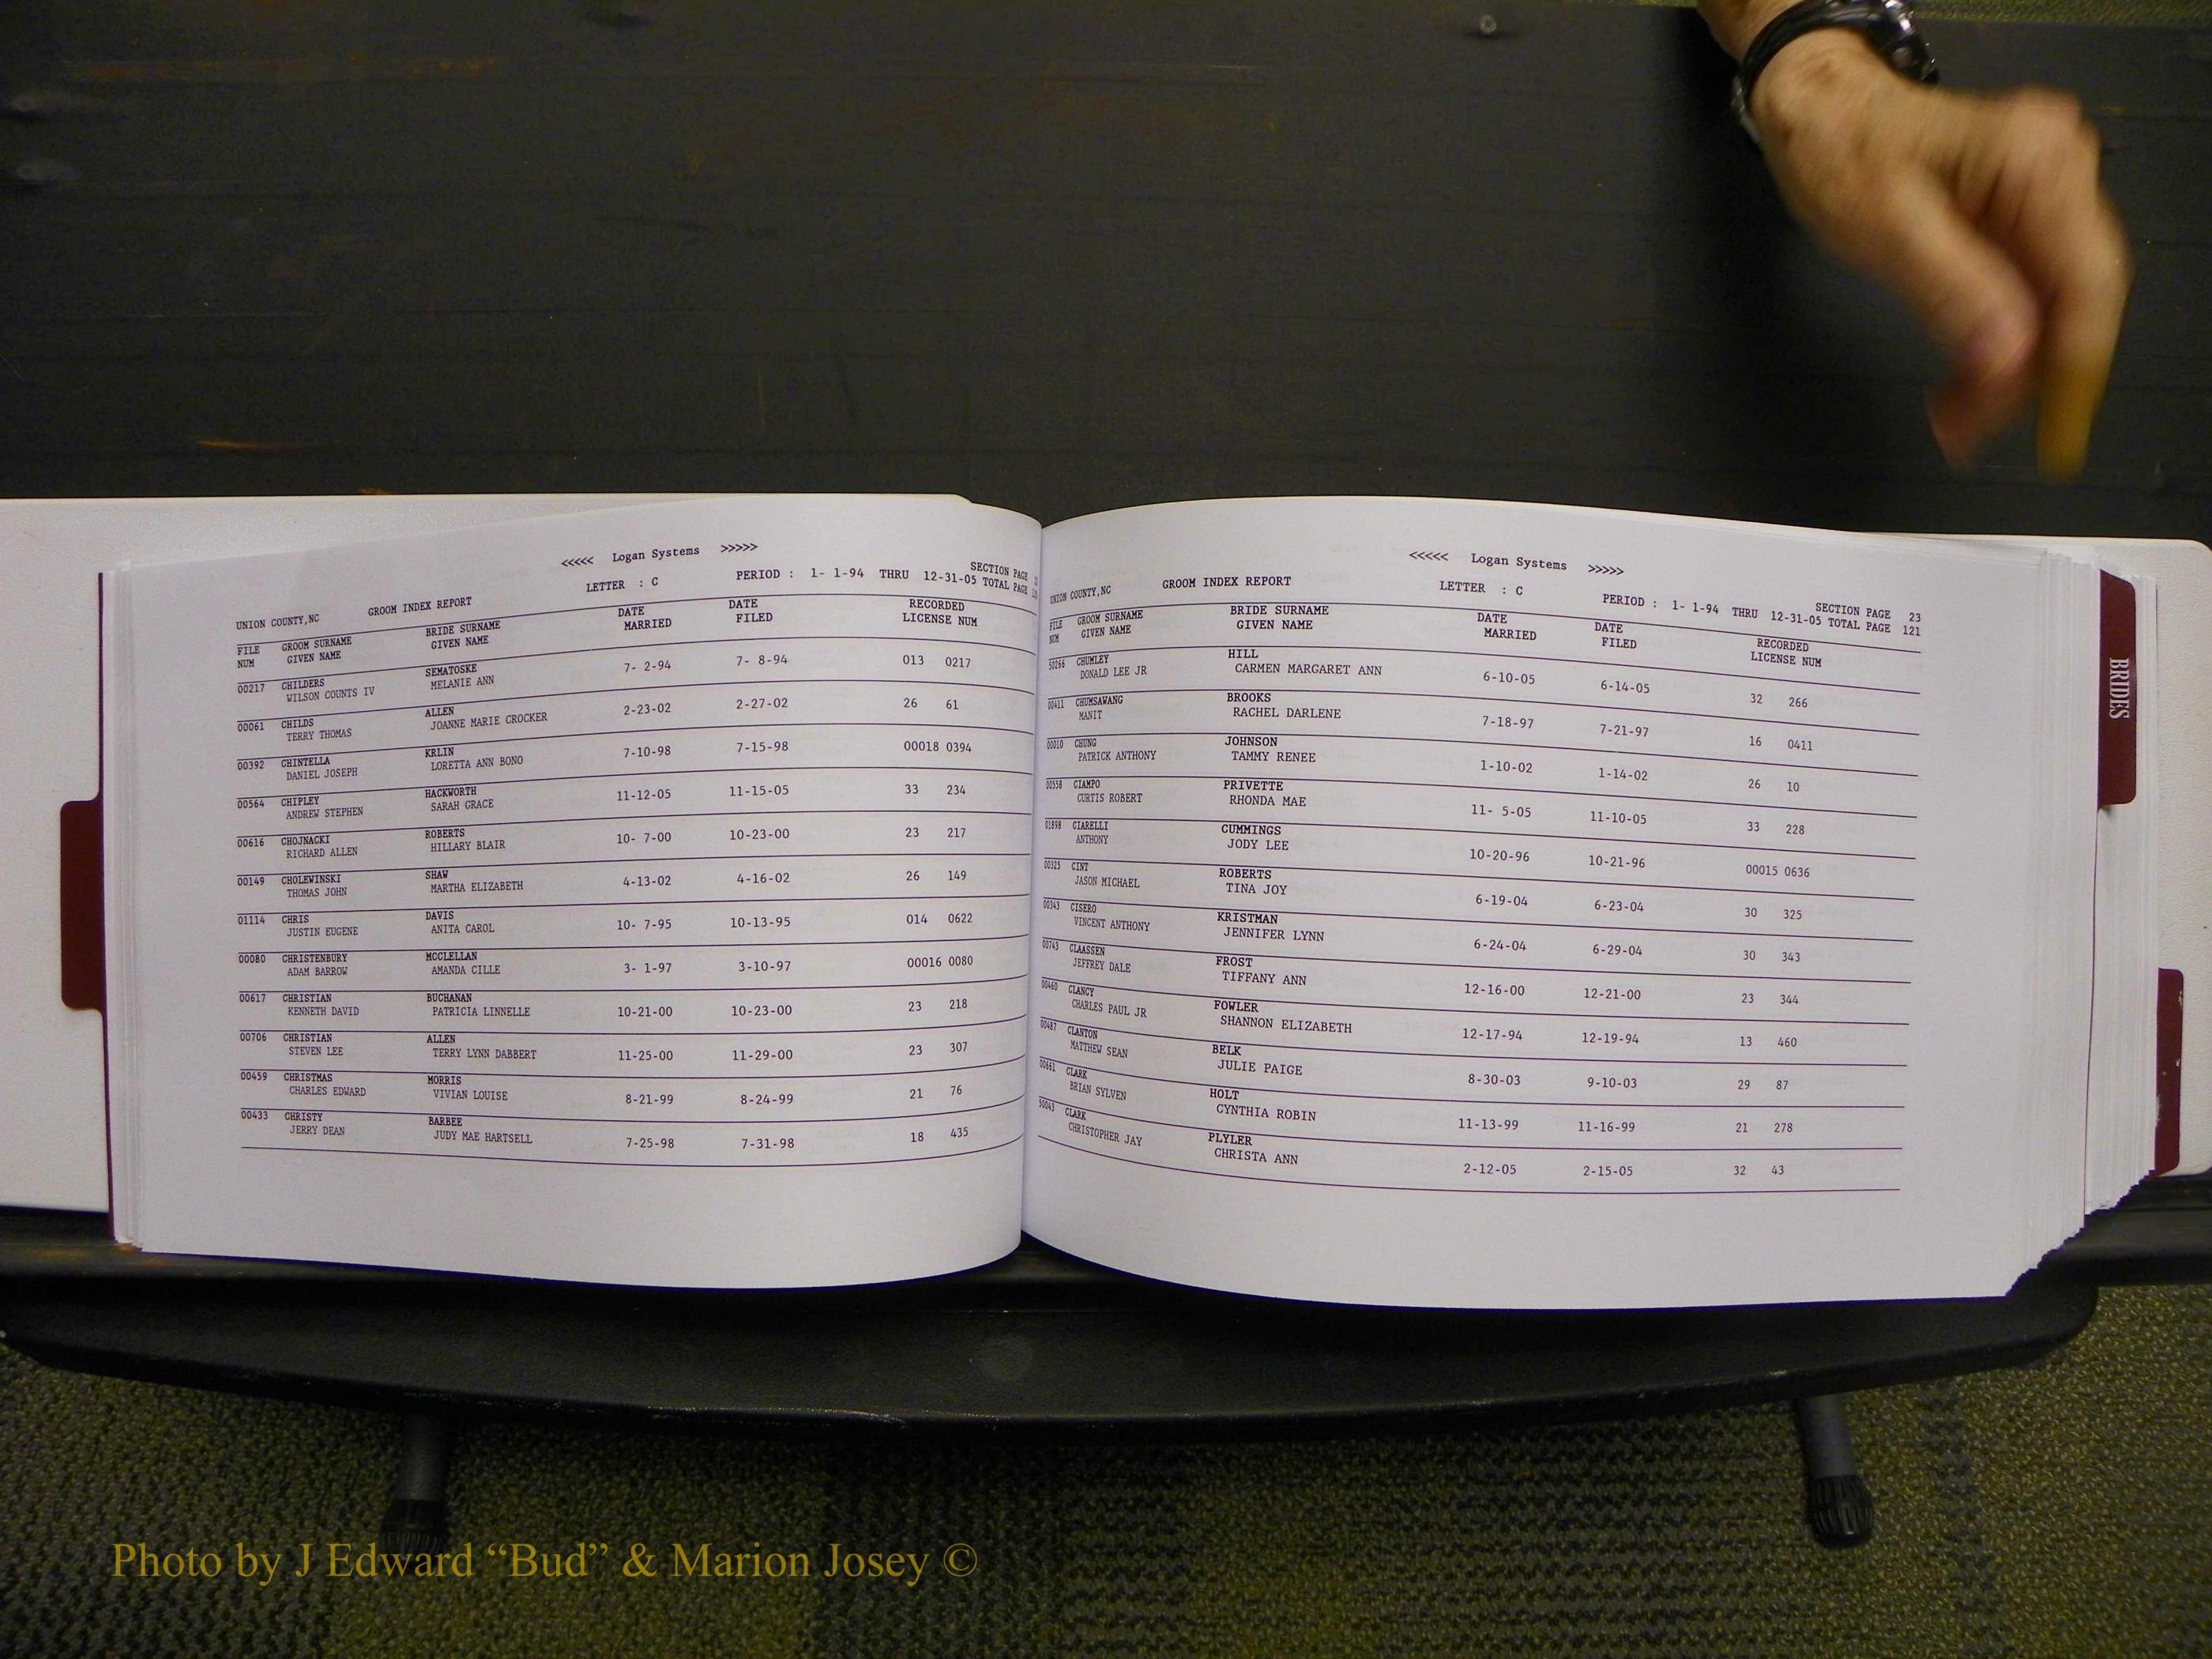 <<<<< Logan Systems >>>>>
UNION COUNTY,NC GROOM INDEX REPORT LETTER : C PERIOD : 1- 1-94 THRU 12-31-05 SECTION PAGE
TOTAL PAGE
FILE GROOM SURNAME BRIDE SURNAME DATE DATE RECORDED
NUM GIVEN NAME GIVEN NAME MARRIED FILED LICENSE NUM
00217 CHILDERS SEMATOSKE 7- 2-94 7- 8-94 013 0217
WILSON COUNTS IV MELANIE ANN
00061 CHILDS ALLEN 2-23-02 2-27-02 26 61
TERRY THOMAS JOANNE MARIE CROCKER
00392 CHINTELLA KRLIN 7-10-98 7-15-98 00018 0394
DANIEL JOSEPH LORETTA ANN BONO
00564 CHIPLEY HACKWORTH 11-12-05 11-15-05 33 234
ANDREW STEPHEN SARAH GRACE
00616 CHOJNACKI ROBERTS 10- 7-00 10-23-00 23 217
RICHARD ALLEN HILLARY BLAIR
00149 CHOLEWINSKI SHAW 4-13-02 4-16-02 26 149
THOMAS JOHN MARTHA ELIZABETH
01114 CHRIS DAVIS 10- 7-95 10-13-95 014 0622
JUSTIN EUGENE ANITA CAROL
00080 CHRISTENBURY MCCLELLAN 3- 1-97 3-10-97 00016 0080
ADAM BARROW AMANDA CILLE
00617 CHRISTIAN BUCHANAN 10-21-00 10-23-00 23 218
KENNETH DAVID PATRICIA LINNELLE
00706 CHRISTIAN ALLEN 11-25-00 11-29-00 23 307
STEVEN LEE TERRY LYNN DABBERT
00459 CHRISTMAS MORRIS 8-21-99 8-24-99 21 76
CHARLES EDWARD VIVIAN LOUISE
00433 CHRISTY BARBEE 7-25-98 7-31-98 18 435
JERRY DEAN JUDY MAE HARTSELL
<<<<< Logan Systems >>>>>
UNION COUNTY,NC GROOM INDEX REPORT LETTER : C PERIOD : 1- 1-94 THRU 12-31-05 SECTION PAGE 23
TOTAL PAGE 121
FILE GROOM SURNAME BRIDE SURNAME DATE DATE RECORDED
NUM GIVEN NAME GIVEN NAME MARRIED FILED LICENSE NUM
50266 CHUMLEY HILL 6-10-05 6-14-05 32 266
DONALD LEE JR CARMEN MARGARET ANN
00411 CHUMSAWANG BROOKS 7-18-97 7-21-97 16 0411
MANIT RACHEL DARLENE
00010 CHUNG JOHNSON 1-10-02 1-14-02 26 10
PATRICK ANTHONY TAMMY RENEE
00558 CIAMPO PRIVETTE 11- 5-05 11-10-05 33 228
CURTIS ROBERT RHONDA MAE
01898 CIARELLI CUMMINGS 10-20-96 10-21-96 00015 0636
ANTHONY JODY LEE
00325 CINT ROBERTS 6-19-04 6-23-04 30 325
JASON MICHAEL TINA JOY
00343 CISERO KRISTMAN 6-24-04 6-29-04 30 343
VINCENT ANTHONY JENNIFER LYNN
00743 CLAASSEN FROST 12-16-00 12-21-00 23 344
JEFFREY DALE TIFFANY ANN
00460 CLANCY FOWLER 12-17-94 12-19-94 13 460
CHARLES PAUL JR SHANNON ELIZABETH
00487 CLANTON BELK 8-30-03 9-10-03 29 87
MATTHEW SEAN JULIE PAIGE
00661 CLARK HOLT 11-13-99 11-16-99 21 278
BRIAN SYLVEN CYNTHIA ROBIN
50043 CLARK PLYLER 2-12-05 2-15-05 32 43
CHRISTOPHER JAY CHRISTA ANN
BRIDES
Photo by J Edward “Bud” & Marion Josey ©